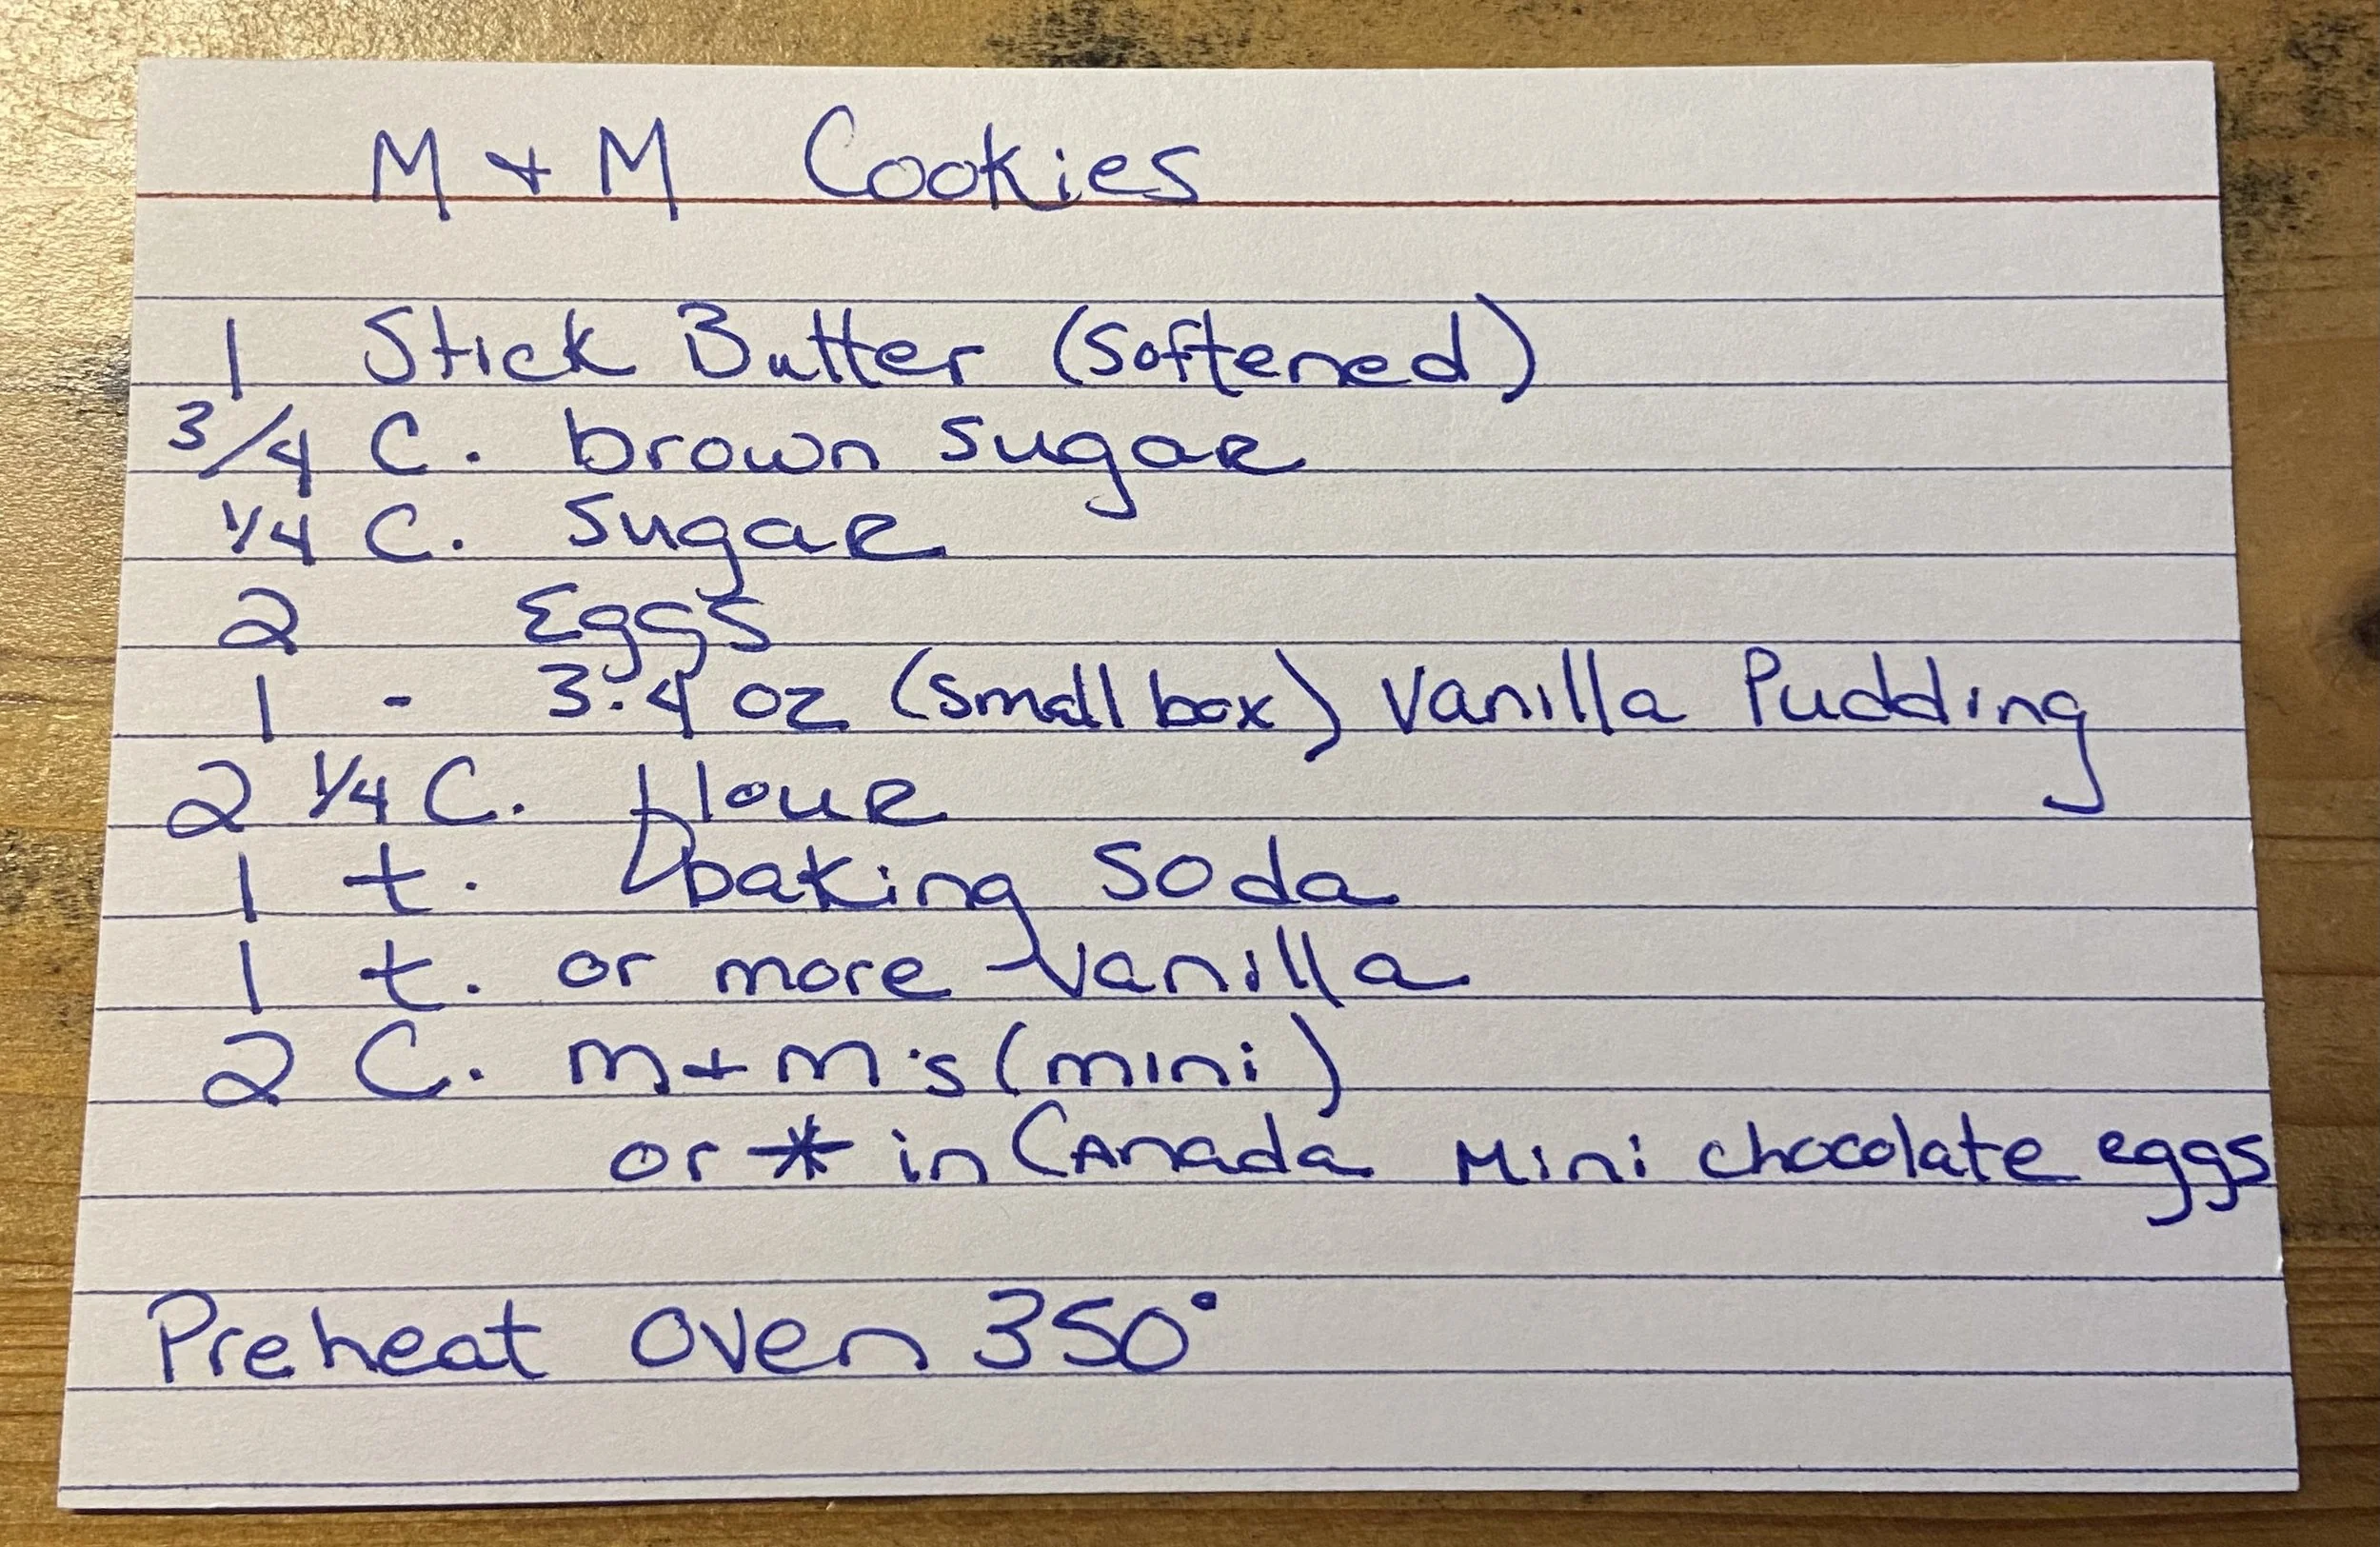 M + M Cookies
1 Stick Butter (Softened)
3/4 C. brown sugar
1/4 C. sugar
2 Eggs
1 - 3.4 oz (small box) Vanilla Pudding
2 1/4 C. flour
1 t. baking soda
1 t. or more vanilla
2 C. m+m's (mini)
or * in Canada Mini chocolate eggs
Preheat oven 350°